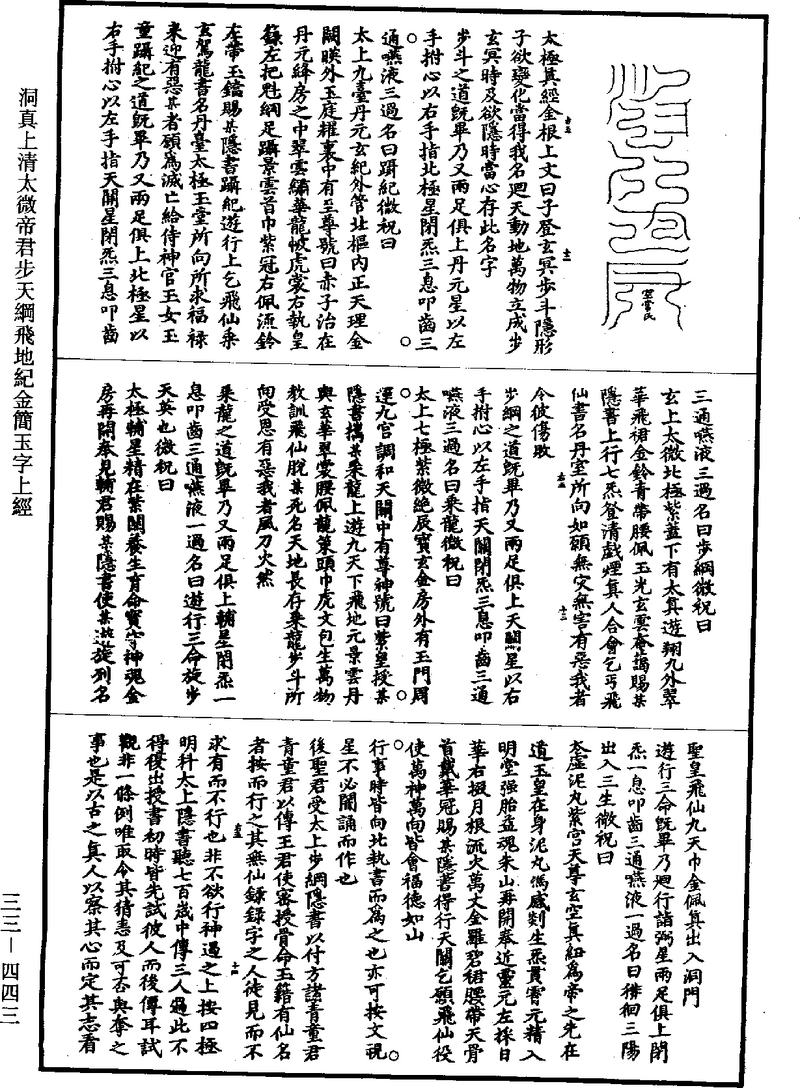 洞真上清太微帝君步天綱飛地紀金簡玉字上經
三三—四四三
太極真經金根上文曰子登玄冥步斗隱形
子欲變化當得我名迴天動地萬物立成步
玄冥時及欲隱時當心存此名字
步斗之道既畢乃又兩足俱上丹元星以左
手拊心以右手指北極星閉炁三息叩齒三
通嚥液三過名曰躡紀微祝曰
太上九臺丹元玄紀外管北樞內正天理金
闕暎外玉庭權裏中有至尊號曰赤子治在
丹元絳房之中翠雲繡華龍帔虎裳右執皇
籙左把魁綱足躡景雲首巾紫冠右佩流鈴
左帶玉鐺賜某隱書躡紀遊行上乞飛仙乘
玄駕龍書名丹臺太極玉堂所向所求福祿
來迎有惡某者願為滅亡給侍神官玉女玉
童躡紀之道既畢乃又兩足俱上北極星以
右手拊心以左手指天關星閉炁三息叩齒
三通嚥液三過名曰步綱微祝曰
玄上太微北極紫蓋下有太真遊翔九外翠
華飛裙金鈴青帶腰佩玉光玄雲奄藹賜某
隱書上行七炁登清戲煙真人合會乞丐飛
仙書名丹室所向如願無灾無害有惡我者
令彼傷敗
步綱之道既畢乃又兩足俱上天關星以右
手拊心以左手指天關閉炁三息叩齒三通
嚥液三過名曰乘龍微祝曰
太上七極紫微絶辰寶玄金房外有玉門周
運九宮調和天關中有尊神號曰紫皇授某
隱書攜某乘龍上遊九天下飛地元景雲丹
輿玄華翠裳腰佩龍策頭巾虎文包生萬物
教訓飛仙脫某死名天地長存乘龍步斗所
向受恩有惡我者風刀火然
乘龍之道既畢乃又兩足俱上輔星閉炁一
息叩齒三通嚥液一過名曰遊行三命旋步
天英也微祝曰
太極輔星精在紫關養生育命寶守神魂金
房再開奉見輔君賜某隱書使某遊旋列名
聖皇飛仙九天巾金佩真出入洞門
遊行三命既畢乃迴行詣弼星兩足俱上閉
炁一息叩齒三通嚥液一過名曰徘徊三陽
出入三生微祝曰
太虛泥丸紫宮天尊玄空真紐為帝之先在
道玉皇在身泥丸儁感剋生炁貫雲元精入
明堂強胎益魂朱山再開奉近靈元左採日
華右掇月根流火萬丈金羅碧裙腰帶天骨
首戴華冠賜某隱書得行天關乞願飛仙役
使萬神萬向皆會福德如山
行事時皆向北執書而為之也亦可按文視
星不必闇誦而作也
後聖君受太上步綱隱書以付方諸青童君
青童君以傳王君使密授骨命玉籍有仙名
者按而行之其無仙錄錄字之人徒見而不
求有而不行也非不欲行神遏之上按四極
明科太上隱書聽七百歲中傳三人過此不
得復出授書初時皆先試彼人而後傳耳試
觀非一條例唯取令其猜恚及可否與奪之
事也是以古之真人以察其心而定其志看